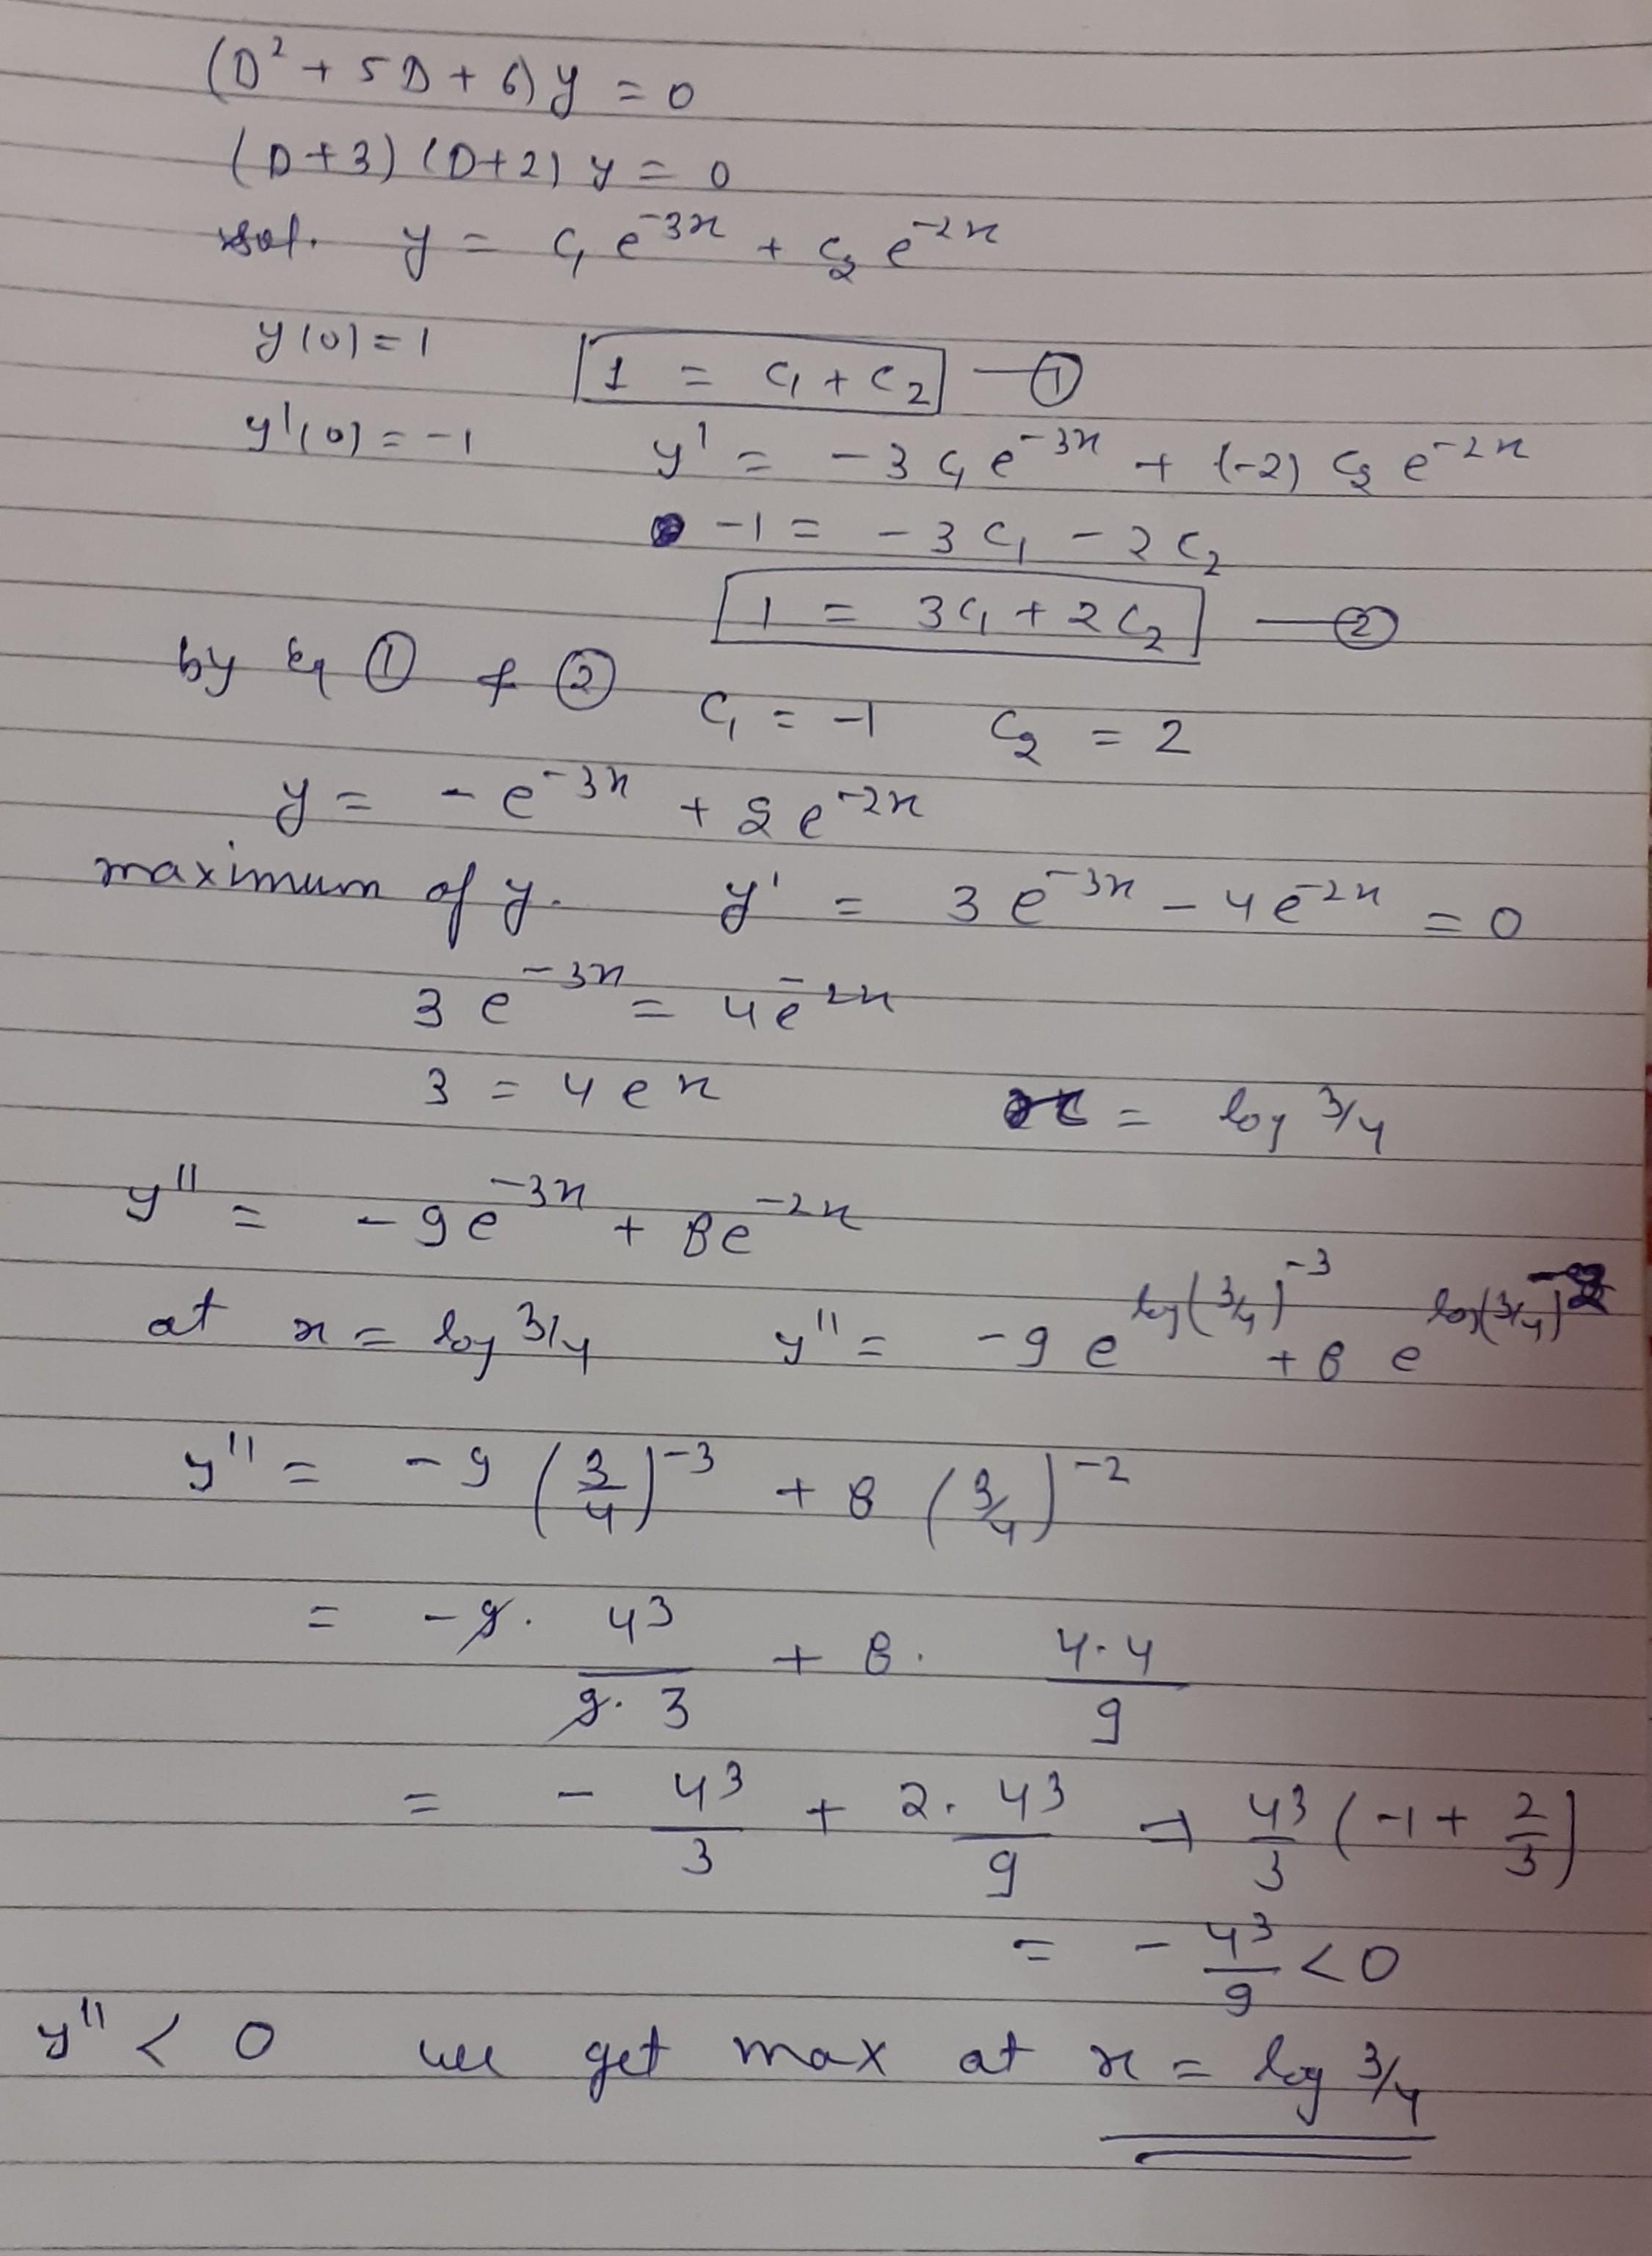 (D² + 5D + 6) y = 0
(D+3) (D+2) y = 0
sol. y = c₁ e⁻³ˣ + c₂ e⁻²ˣ
y(0) = 1 1 = c₁ + c₂ — ①
y'(0) = -1 y' = -3 c₁ e⁻³ˣ + (-2) c₂ e⁻²ˣ
-1 = -3 c₁ - 2 c₂
1 = 3c₁ + 2c₂ — ②
by eq ① & ② c₁ = -1 c₂ = 2
y = - e⁻³ˣ + 2 e⁻²ˣ
maximum of y. y' = 3 e⁻³ˣ - 4 e⁻²ˣ = 0
3 e⁻³ˣ = 4 e⁻²ˣ
3 = 4 eˣ x = log 3/4
y'' = -9e⁻³ˣ + 8e⁻²ˣ
at x = log 3/4 y'' = -9 e^{log(3/4)^{-3}} + 8 e^{log(3/4)^{-2}}
y'' = -9 (3/4)⁻³ + 8 (3/4)⁻²
= -9 · 4³/(9·3) + 8 · (4·4)/9
= - 4³/3 + 2·4³/9 ⇒ 4³/3 (-1 + 2/3)
= - 4³/9 < 0
y'' < 0 we get max at x = log 3/4